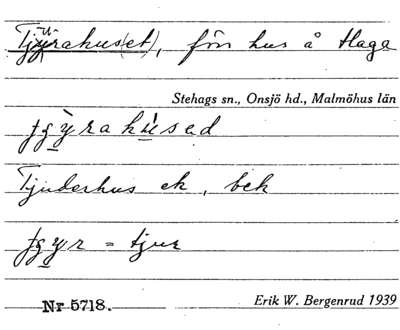 Tjyrahus(et), förr hus å Haga
Stehags sn., Onsjö hd., Malmöhus län
tgỳrahùsad
Tjuderhus ek, bek
tgyr = tjur
Nr 5718.
Erik W. Bergenrud 1939